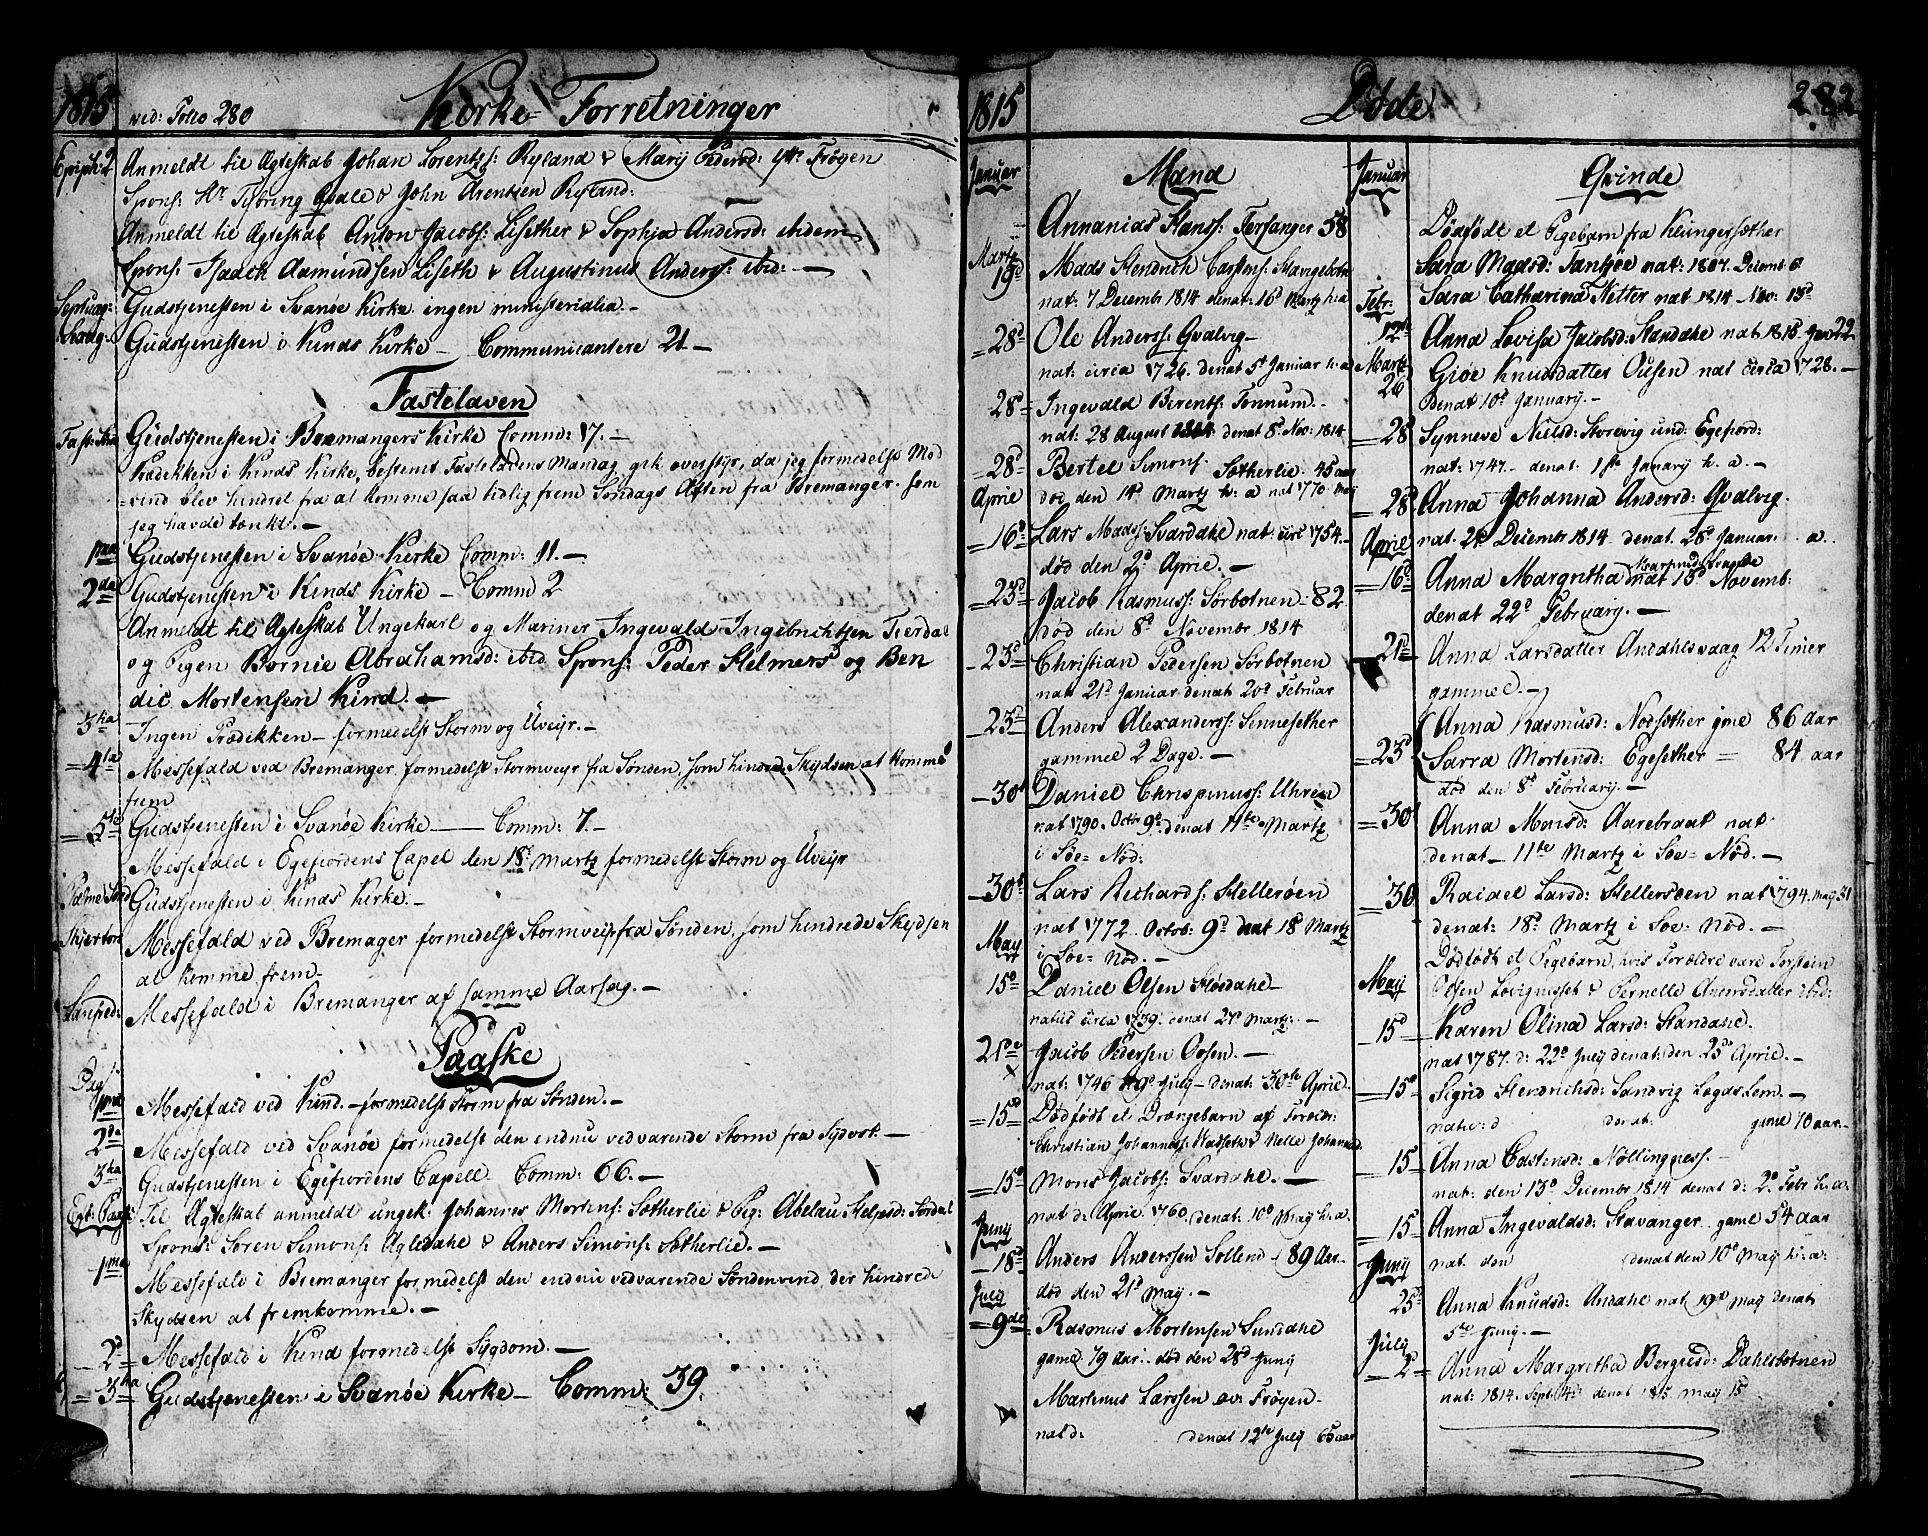 1815 vid: Folio 280 Kirke-Forretninger
Epiph: 2 Anmeldt til Ægteskab Johan Lorentzs: Ryland & Marij Pedersd: Frøyen
Spons: Hr Tyøring Qvale & John Arentsen Ryland:
Anmeldt til Ægteskab Anton Jacobs: Lisether & Sophia Andersd: ibidem
Spons: Isaach Aamundsen Liseth & Augustinus Anderss: ibid: —
Septuag: Gudstjenesten i Svanøe Kirke ingen ministerialia. —
Sexag: Gudstjenesten i Kinds Kirke — Communicantere 21. —
Fastelaven
Gudstjenesten i Bremangers Kirke Comm: 17. —
Prædikken i Kinds Kirke, bestemt Fastelavens Mandag, gik overstyr, da jeg formedelst Mod
=vind blev hindret fra at komme saa tidlig frem Søndags Aften fra Bremanger. som
jeg havde tænkt. —
1ma Gudstjenesten i Svanøe Kirke Comm: 11. —
2da Gudstjenesten i Kinds Kirke — Comm 2
Anmeldt til Ægteskab Ungekarl og Mariner Ingevald Ingebrichtsen Tierdal
og Pigen Bornie Abrahamsd: ibid Spons: Peder Helmers og Ben
dic Mortensen Kind. —
3tia Ingen Prædikken — formedelst Storm og Uveyr. —
4ta Messefald ved Bremanger formedelst Stormveyr fra Sønden, som hindred Skydsen at komme
frem
5te Gudstjenesten i Svanøe Kirke — Comm: 7. —
Messefald i Egefiordens Capel den 18d Martz formedelst Storm og Uveyr
Palme Sønd Gudstjenesten i Kinds Kirke. —
Skjertor Messefald ved Bremager formedelst Stormveyr fra Sønden, som hindrede Skydsen
at komme frem —
Langfred: Messefald i Bremanger af samme Aarsag. —
Paaske
1ma Messefald ved Kind. — formedelst Storm fra Sønden. —
2da Messefald ved Svanøe formedelst den endnu vedvarende Storm fra Sydvest. —
3tia Gudstjenesten i Egefiordens Capell Comm: 66. —
Til Ægteskab anmeldt ungek: Johannes Mortens: Sætherlie & Pig: Abelau Helgesd: Førdal
Spons: Søren Simons: Agledahl & Anders Simons: Sætherlie. —
1ma Messefald i Bremanger formedelst den endnu vedvarende Søndenvind, der hindrede
Skydsen at fremkomme. —
2d Messefald i Kind formedelst Sygdom. —
3tia Gudstjenesten i Svanøe Kirke — Comm: 39
1815 Døde 282
Januar Mænd
Annanias Hans: Tersanger 58
Martz 19d Mads Hendrich Carstens: Stangebotn
nat: 7 Decembr 1814 denat: 16d Martz h: a
28d Ole Anderss: Qvalvig —
nat: circa 1726. denat 5t Januar h: a
28d Ingevald Berents: Tonnum. —
nat: 28 August 1814 denat 8d Nov: 1814
28d Bertel Simons: Sætherlie 45 aar
død den 14d Martz h: a nat 1770 May
April 16d Lars Madss: Svardahl nat: circ 1754. —
død den 2d April. —
23d Jacob Rasmuss: Sørbotnen — 82
død den 8d Novembr 1814
23d Christian Pedersen Sørbotnen
nat 21d Januar denat 20d Februar
23d Anders Alexanderss: Sennesether
gammel 2 Dage. —
30t Daniel Chrispinuss: Uhren
nat 1790. Octbr 9d denat 11te Martz
i Søe-Nød:
30t Lars Richards: Hellerøen
nat 1772. Octob: 9d denat 18d Martz
i Søe-Nød. —
May 15d Daniel Olsen Høydahl —
natus circa 1739. denat 27d Martz: —
21de Jacob Pedersen Oosen. —
nat: 1746 d 9d July — denat: 30te April.
15d Dødfødt et Drængebarn af Forældr:
Christian Johannes: Nelle Johannesd.
15d Mons Jacobs: Svardahl. —
nat d: April 1760. denat: 10d May h: a.
Juny 18d Anders Anderssen Sollem — 89 Aar
død den 21d May. —
July 9de Rasmus Mortensen Sundahl
gaml 79 aar. død den 28d Juny
Martinus Larssen Frøyen —
nat d: denat 12te July 65 aar
Januar Qvinde
Dødfødt et Pigebarn fra Klungersæther
Sara Madsd: Tansøe nat: 1807. Decemb 6
Sara Catharina Netter nat 1814 Nov: 15d
Febr. 12te Anna Lovisa Jacobsd: Standahl nat 1815 Jan 22
Martz 26 Gioe Knudsdatter Ousen nat circa 1728. —
denat 10d January. —
28 Synneve Nielsd: Storevig und: Egefiord:
nat: 1747 — denat: 1ste January h. a. —
28d Anna Johanna Andersd: Qvalvig.
nat 21d Decembr 1814 denat. 28d Januar. a.
April 16d Anna Margretha nat 15d Novemb:
denat 22d February. —
21d Anna Larsdatter Andahlsvaag 12 Timer
gammel. —
23d Anna Rasmusd: Nodsæther gml 86 aar
Sarra Mortensd: Egesether = 84 aar
død den 8d February. —
30t Anna Monsd: Aarebraat nat
denat — 11te Martz i Søe-Nød. —
30 Rachel Larsd: Hellersøen nat 1794. May 31
denat: 18d Martz i Søe-Nød. —
Dødfødt et Pigebarn, hvis Forældre vare Torstein
May Olsen Løvignesset & Pernelle Arensdatter ibid:
15d Karen Olina Larsd: Standahl.
nat 1787. d: 22d July denat: den 23d April. —
15d Sigrid Hendrichsd: Sandvig Lægds Lem. —
nat: d denat: gml 70 aar. —
15 Anna Castensd: Nøllingness. —
nat: den 13d Decembr 1814 denat d: 2d Febr h: a:
15 Anna Ingevaldsd: Stavanger. gaml 54 aar
Juny nat. den denat den 10d May h: a:
25d Anna Knudsd: Andahl nat 19d May denat
5te Juny. —
July 2d Anna Margretha Bergesd: Dahlsbotnen
nat: 1814. Sept: 4d denat 1815 May 15